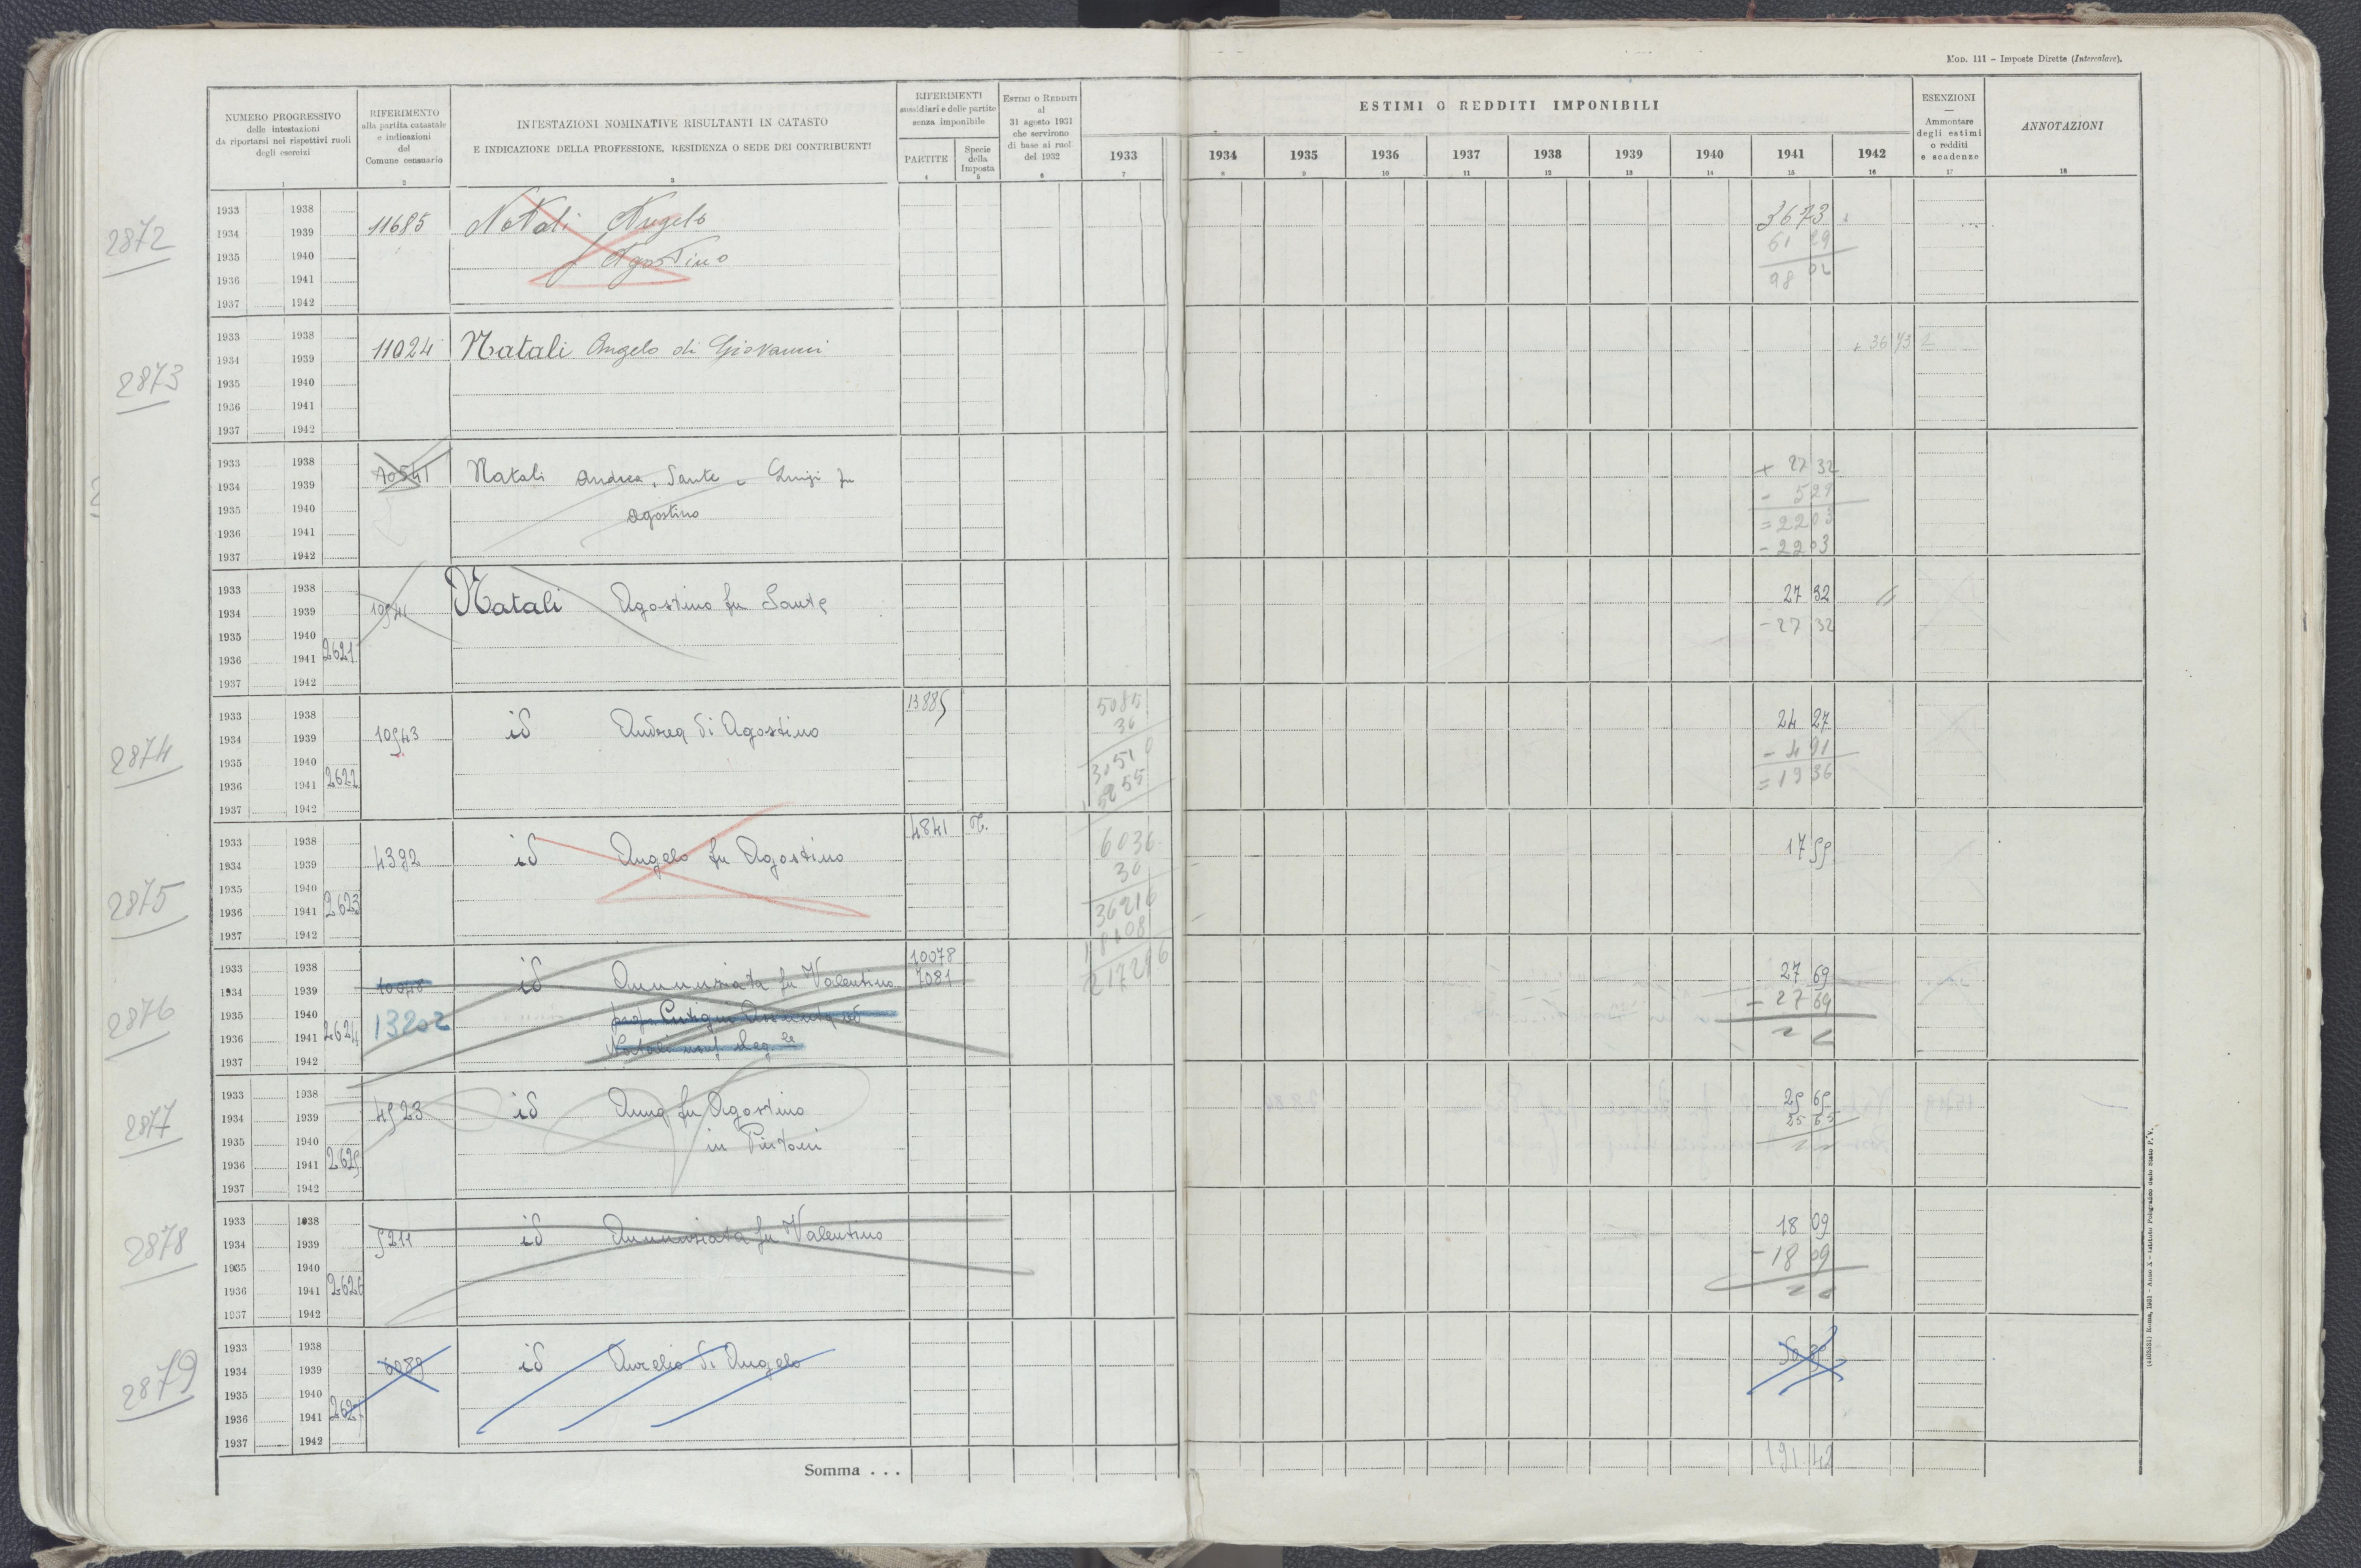 Mod. 111 – Imposte Dirette (Intercalare).
NUMERO PROGRESSIVO
delle intestazioni
da riportarsi nei rispettivi ruoli
degli esercizi
1
RIFERIMENTO
alla partita catastale
e indicazioni
del
Comune censuario
2
INTESTAZIONI NOMINATIVE RISULTANTI IN CATASTO
E INDICAZIONE DELLA PROFESSIONE, RESIDENZA O SEDE DEI CONTRIBUENTI
3
RIFERIMENTI
sussidiari e delle partite
senza imponibile
PARTITE
4
Specie
della
Imposta
5
Estimi o Redditi
al
31 agosto 1931
che servirono
di base ai ruoli
del 1932
6
ESTIMI O REDDITI IMPONIBILI
1933 1934 1935 1936 1937 1938 1939 1940 1941 1942
7 8 9 10 11 12 13 14 15 16
ESENZIONI
—
Ammontare
degli estimi
o redditi
e scadenze
17
ANNOTAZIONI
18
2872
1933 1938
1934 1939 11685 Natali Angelo 36 73
1935 1940 f Agostino 61 29
1936 1941 98 02
1937 1942
2873
1933 1938
1934 1939 11024 Natali Angelo di Giovanni + 36 73
1935 1940
1936 1941
1937 1942
1933 1938 + 27 32
1934 1939 10541 Natali Andrea, Sante e Luigi fu - 5 29
1935 1940 Agostino = 22 03
1936 1941 - 22 03
1937 1942
1933 1938
1934 1939 10541 Natali Agostino fu Sante 27 32
1935 1940 - 27 32
1936 1941 2621
1937 1942
2874
1933 1938 13885 5085
1934 1939 10543 id Andrea di Agostino 36 24 27
1935 1940 30510 - 4 91
1936 1941 2622 = 19 36
1937 1942
2875
1933 1938 4841 6036
1934 1939 4392 id Angelo fu Agostino 36 17 55
1935 1940 36216
1936 1941 2623 18108
1937 1942 217296
2876
1933 1938 10078
1934 1939 id Annunziata fu Valentino 7081 27 69
1935 1940 13202 - 27 69
1936 1941 2624
1937 1942
2877
1933 1938
1934 1939 4523 id Anna fu Agostino 25 65
1935 1940 in Pistoni 25 65
1936 1941 2625
1937 1942
2878
1933 1938
1934 1939 5211 id Annunziata fu Valentino 18 09
1935 1940 - 18 09
1936 1941 2626
1937 1942
2879
1933 1938
1934 1939 6089 id Aurelio di Angelo
1935 1940
1936 1941 2627
1937 1942
Somma . . . 191 42